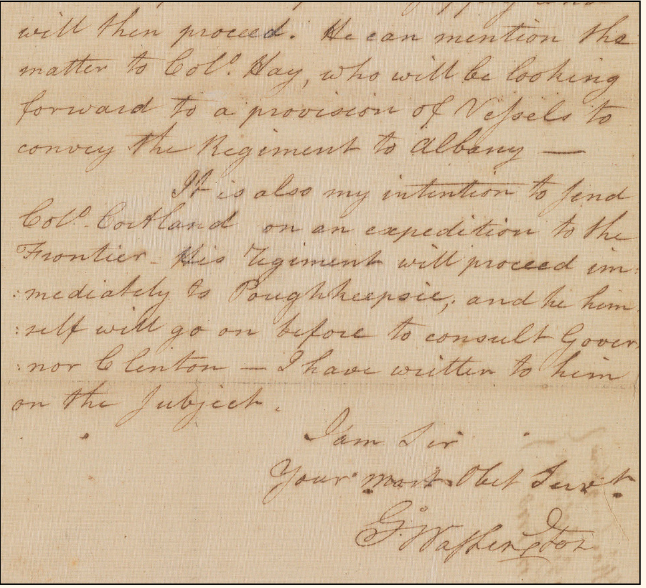 will then proceed. He can mention the
matter to Colo. Hay, who will be looking
forward to a provision of Vessels to
convey the Regiment to Albany —
It is also my intention to send
Colo. Cortland on an expedition to the
Frontier – His Regiment will proceed im-
:mediately to Poughkeepsie; and he him-
:self will go on before to consult Gover-
:nor Clinton — I have written to him
on the Subject.
I am Sir
Your most Obet Servt.
Go. Washington